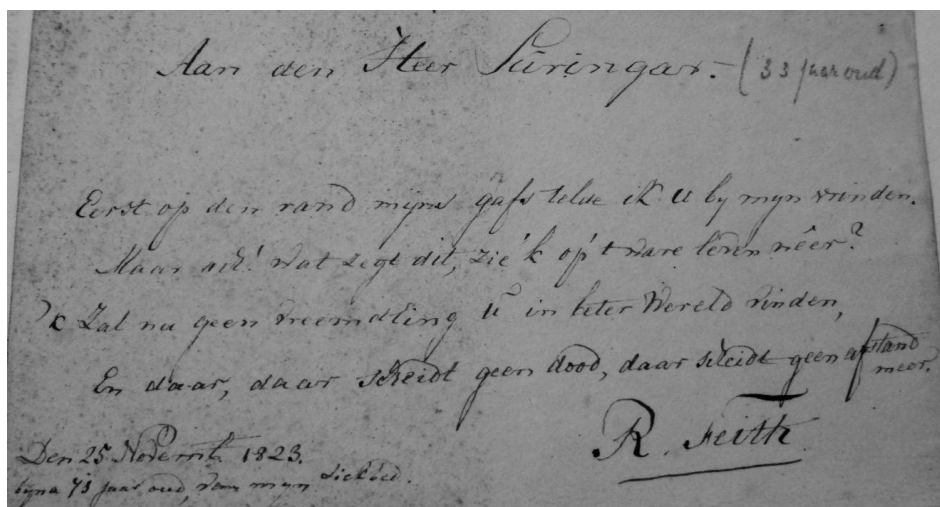 Aan den Heer Suringar. (33 jaar oud)
Eerst op den rand mijns grafs telde ik U by myn vrinden.
Maar ach! wat zegt dit, zie 'k op 't ware leven nêer?
'k Zal nu geen vreemdling U in beter Wereld vinden,
En daar, daar scheidt geen dood, daar scheidt geen afstand meer.
R. Feith
Den 25 Novemb. 1823.
byna 71 jaar oud, van myn ziekbed.